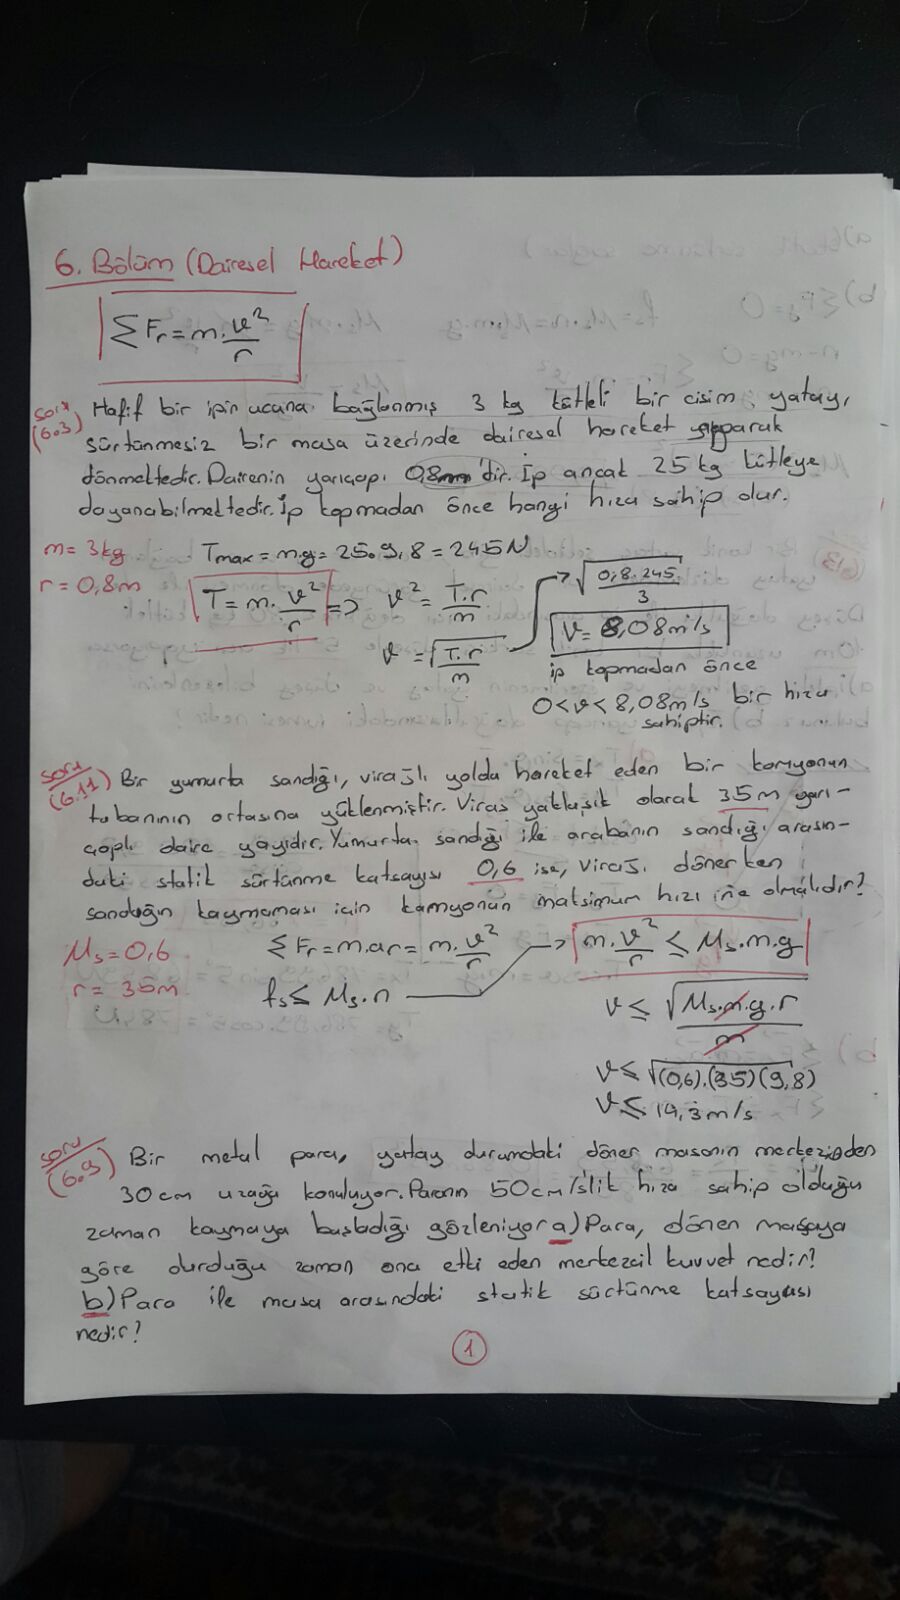 6. Bölüm (Dairesel Hareket)
ΣFr = m.v²/r
Soru (6.3) Hafif bir ipin ucuna bağlanmış 3 kg kütleli bir cisim, yatay,
sürtünmesiz bir masa üzerinde dairesel hareket yaparak
dönmektedir. Dairenin yarıçapı 0,8m'dir. İp ancak 25 kg kütleye
dayanabilmektedir. İp kopmadan önce hangi hıza sahip olur.
m = 3kg
Tmax = m.g = 25.9,8 = 245N
r = 0,8m
T = m.v²/r => v² = T.r/m
v = √(T.r/m) → √(0,8.245/3)
v = 8,08m/s
ip kopmadan önce
0 < v < 8,08m/s bir hıza
sahiptir.
Soru (6.11) Bir yumurta sandığı, virajlı yolda hareket eden bir kamyonun
tabanının ortasına yüklenmiştir. Viraj yaklaşık olarak 35m yarı-
çaplı daire yayıdır. Yumurta sandığı ile arabanın sandığı arasın-
daki statik sürtünme katsayısı 0,6 ise, virajı dönerken
sandığın kaymaması için kamyonun maksimum hızı ne olmalıdır?
Ms = 0,6
r = 35m
ΣFr = m.ar = m.v²/r
fs ≤ Ms.n → m.v²/r ≤ Ms.m.g
v ≤ √(Ms.m.g.r/m)
v ≤ √(0,6).(35)(9,8)
v ≤ 14,3m/s
soru (6.9) Bir metal para, yatay durumdaki döner masanın merkezinden
30cm uzağa konuluyor. Paranın 50cm/s'lik hıza sahip olduğu
zaman kaymaya başladığı gözleniyor a) Para, dönen masaya
göre durduğu zaman ona etki eden merkezcil kuvvet nedir?
b) Para ile masa arasındaki statik sürtünme katsayısı
nedir?
1